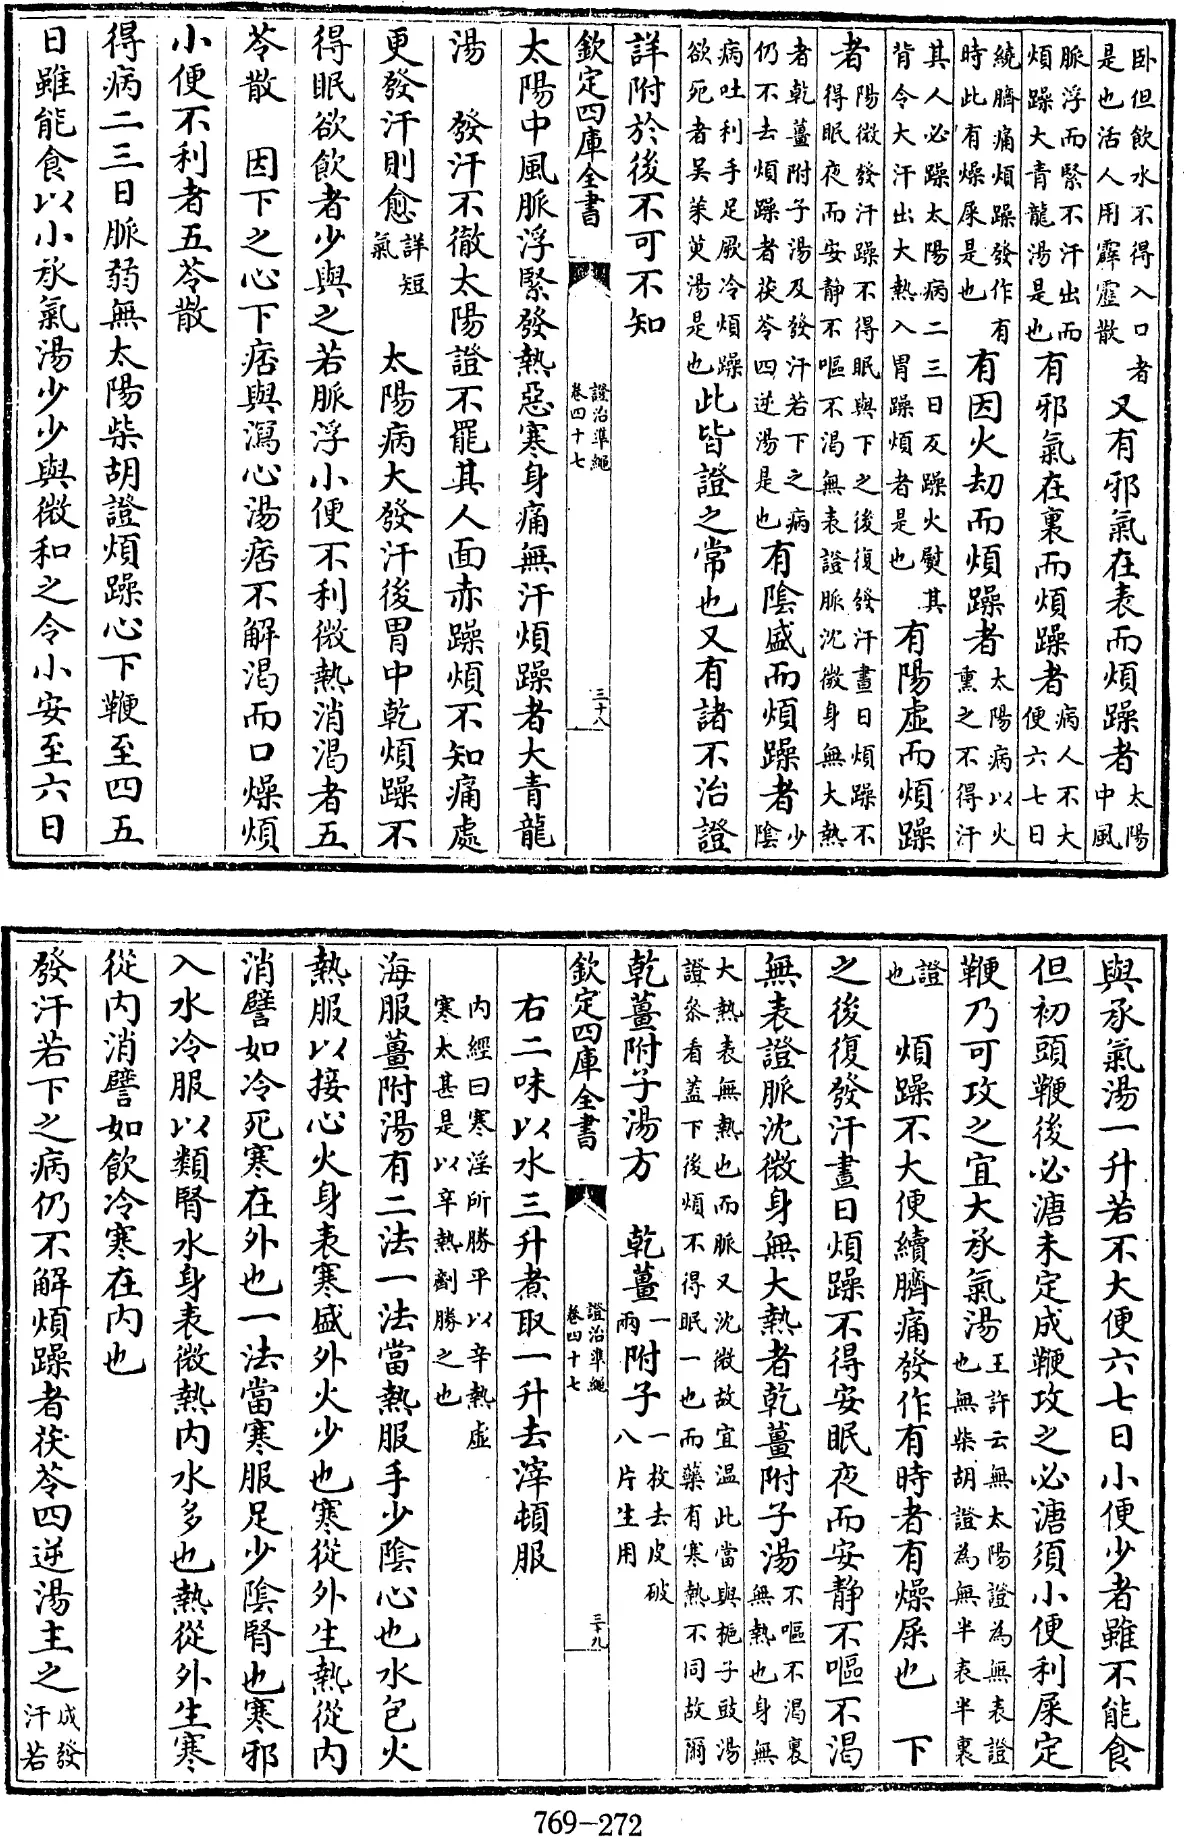 卧但飲水不得入口者是也活人用霹靂散又有邪氣在表而煩躁者太陽中風
脈浮而緊不汗出而煩躁大青龍湯是也有邪氣在裏而煩躁者病人不大便六七日
繞臍痛煩躁發作有時此有燥屎是也有因火劫而煩躁者太陽病以火熏之不得汗
其人必躁太陽病二三日反躁火熨其背令大汗出大熱入胃躁煩者是也有陽虛而煩躁
者陽微發汗躁不得眠與下之後復發汗晝日煩躁不得眠夜而安靜不嘔不渴無表證脈沈微身無大熱
者乾薑附子湯及發汗若下之病仍不去煩躁者茯苓四逆湯是也有陰盛而煩躁者少陰
病吐利手足厥冷煩躁欲死者吳茱萸湯是也此皆證之常也又有諸不治證
詳附於後不可不知
欽定四庫全書 證治準繩卷四十七 三十八
太陽中風脈浮緊發熱惡寒身痛無汗煩躁者大青龍
湯　發汗不徹太陽證不罷其人面赤躁煩不知痛處
更發汗則愈詳短氣　太陽病大發汗後胃中乾煩躁不
得眠欲飲者少與之若脈浮小便不利微熱消渴者五
苓散　因下之心下痞與瀉心湯痞不解渴而口燥煩
小便不利者五苓散
得病二三日脈弱無太陽柴胡證煩躁心下鞕至四五
日雖能食以小承氣湯少少與微和之令小安至六日
與承氣湯一升若不大便六七日小便少者雖不能食
但初頭鞕後必溏未定成鞕攻之必溏須小便利屎定
鞕乃可攻之宜大承氣湯王許云無太陽證為無表證也無柴胡證為無半表半裏
證也　煩躁不大便繞臍痛發作有時者有燥屎也　下
之後復發汗晝日煩躁不得安眠夜而安靜不嘔不渴
無表證脈沈微身無大熱者乾薑附子湯不嘔不渴裏無熱也身無
大熱表無熱也而脈又沈微故宜温此當與梔子豉湯證叅看蓋下後煩不得眠一也而藥有寒熱不同故爾
乾薑附子湯方　乾薑一兩附子一枚去皮破八片生用
欽定四庫全書 證治準繩卷四十七 三十九
右二味以水三升煮取一升去滓頓服
內經曰寒淫所勝平以辛熱虛寒太甚是以辛熱劑勝之也
海服薑附湯有二法一法當熱服手少陰心也水包火
熱服以接心火身表寒盛外火少也寒從外生熱從內
消譬如冷死寒在外也一法當寒服足少陰腎也寒邪
入水冷服以類腎水身表微熱內水多也熱從外生寒
從內消譬如飲冷寒在內也
發汗若下之病仍不解煩躁者茯苓四逆湯主之成發汗若
769-272